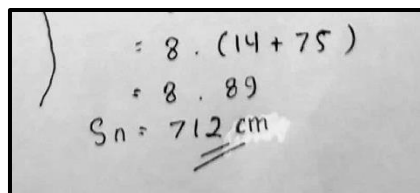 = 8 . (14 + 75)
= 8 . 89
Sn = 712 cm